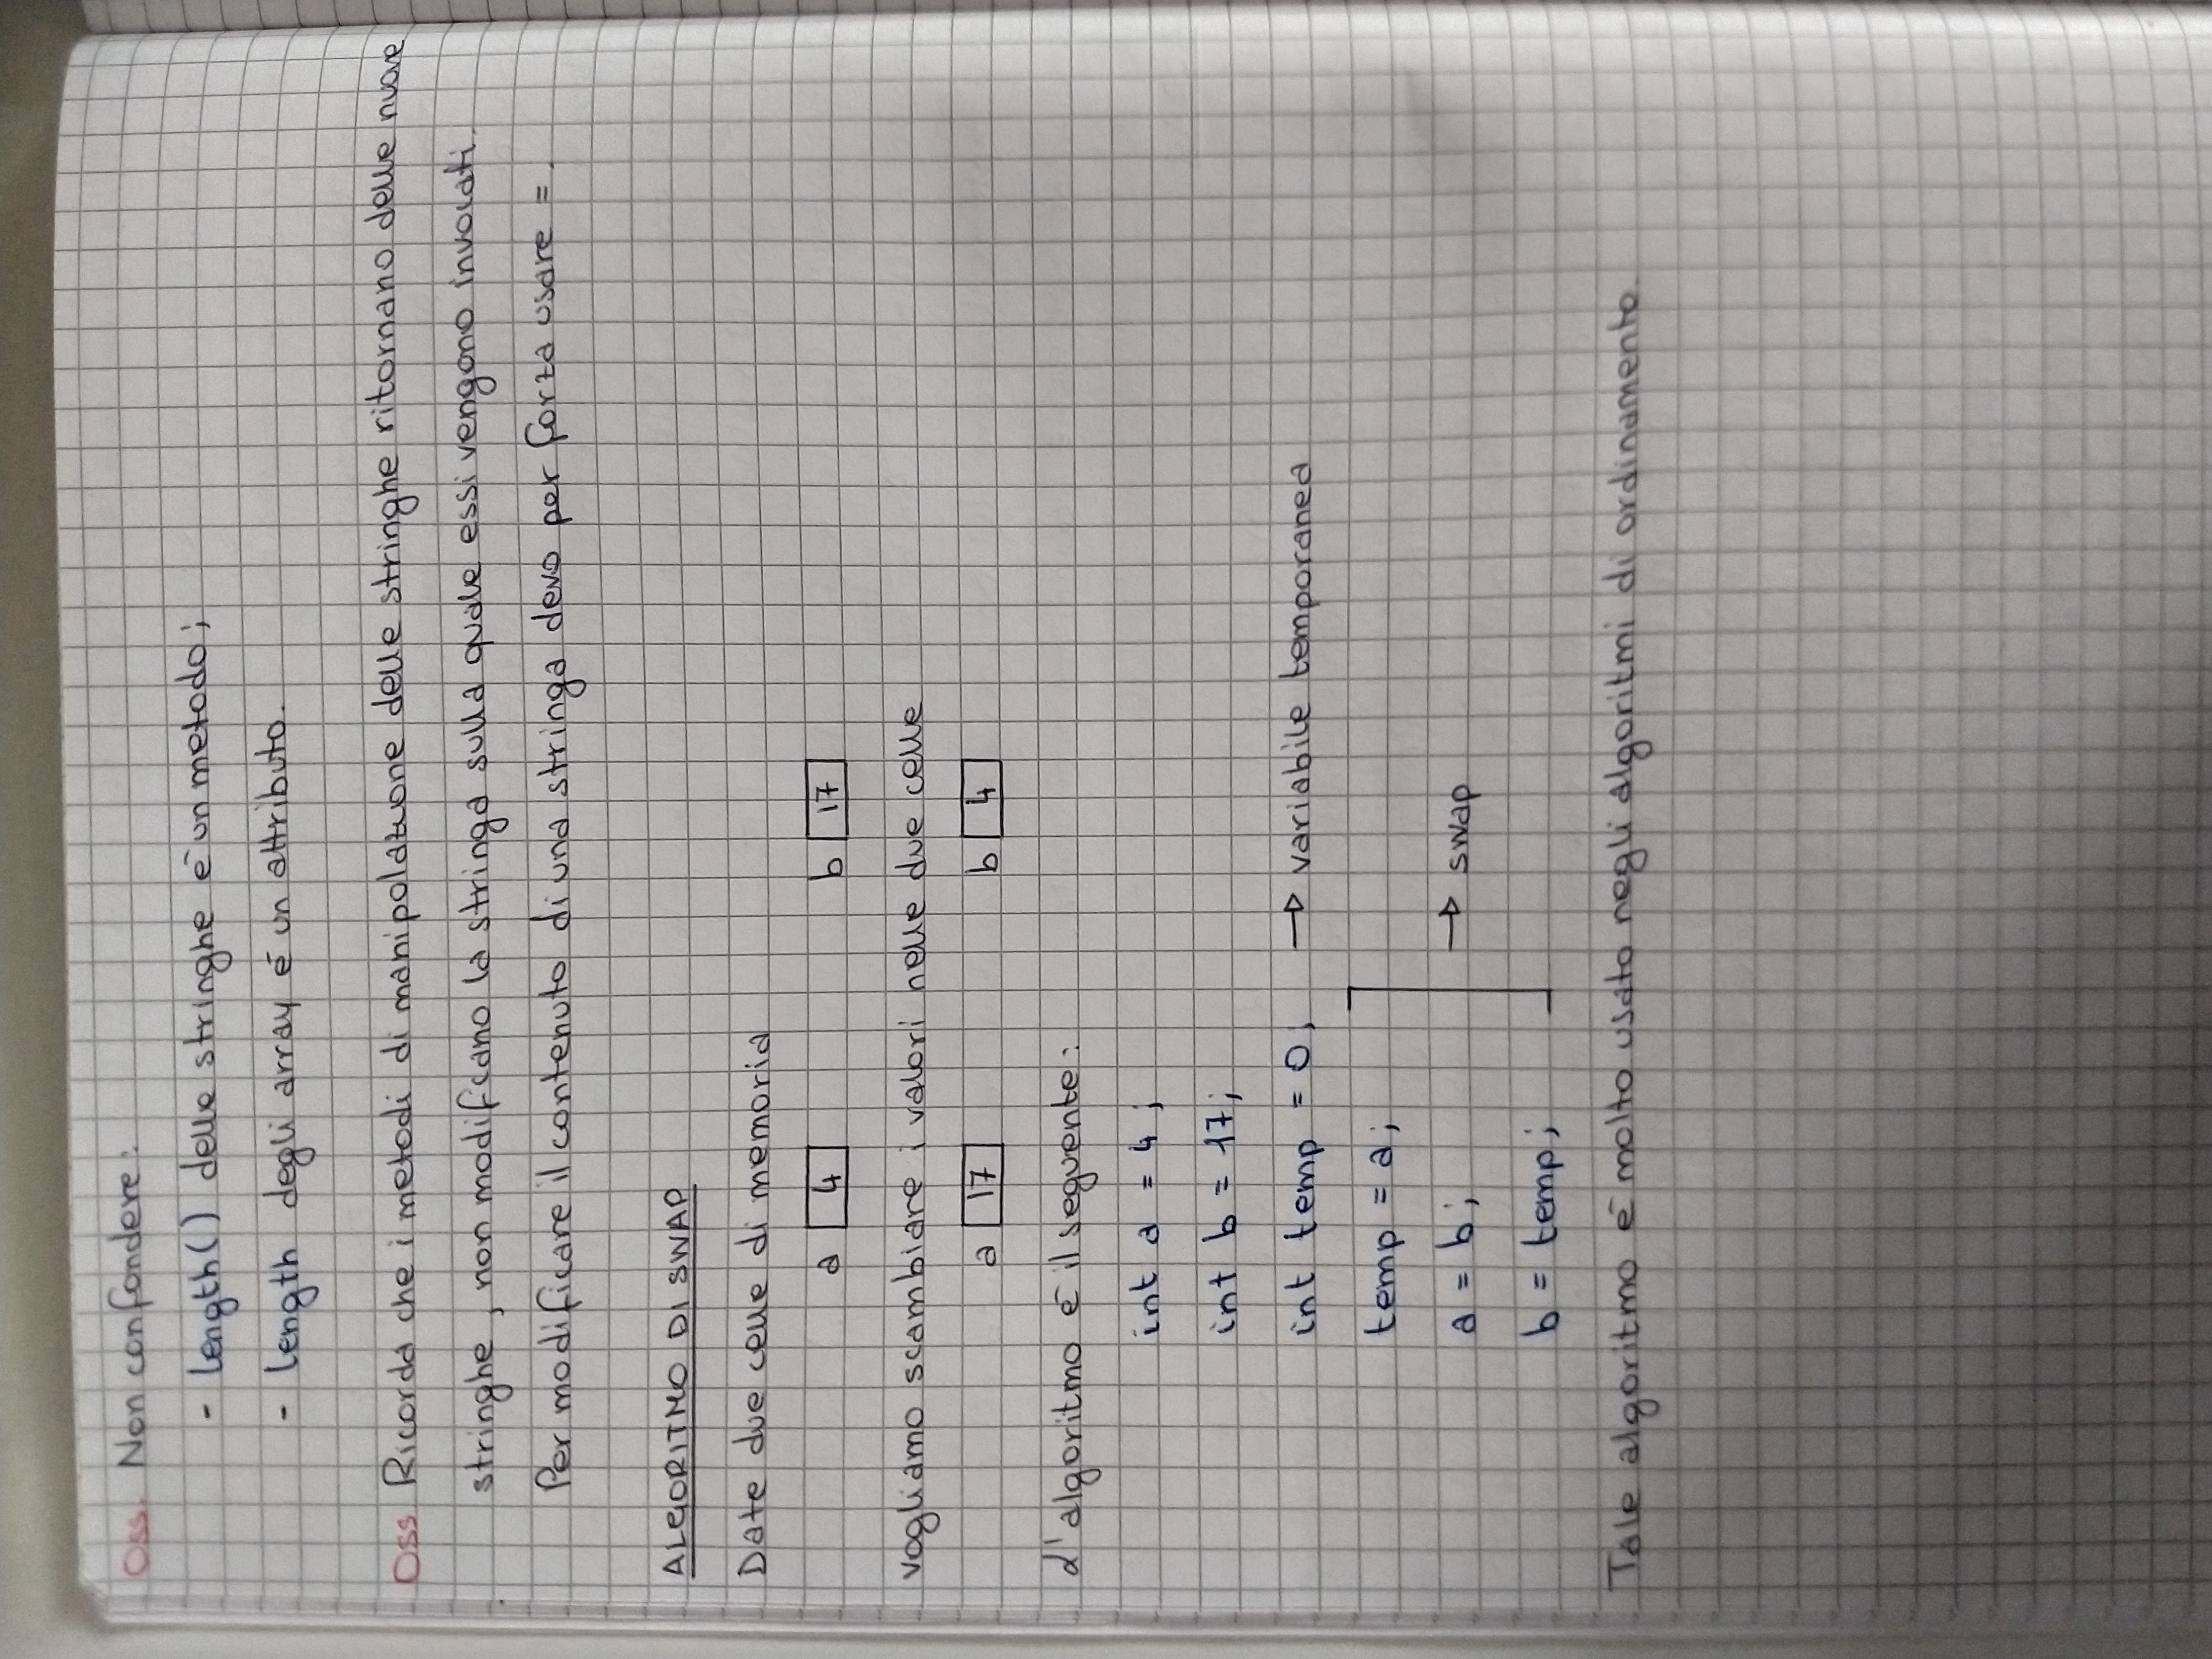 Oss. Non confondere:
- length() delle stringhe è un metodo;
- length degli array è un attributo.
Oss Ricorda che i metodi di manipolazione delle stringhe ritornano delle nuove
stringhe, non modificano la stringa sulla quale essi vengono invocati.
Per modificare il contenuto di una stringa devo per forza usare =.
ALGORITMO DI SWAP
Date due celle di memoria
a 4 b 17
vogliamo scambiare i valori nelle due celle
a 17 b 4
L'algoritmo è il seguente:
int a = 4;
int b = 17;
int temp = 0; → variabile temporanea
temp = a;
a = b; → swap
b = temp;
Tale algoritmo è molto usato negli algoritmi di ordinamento.